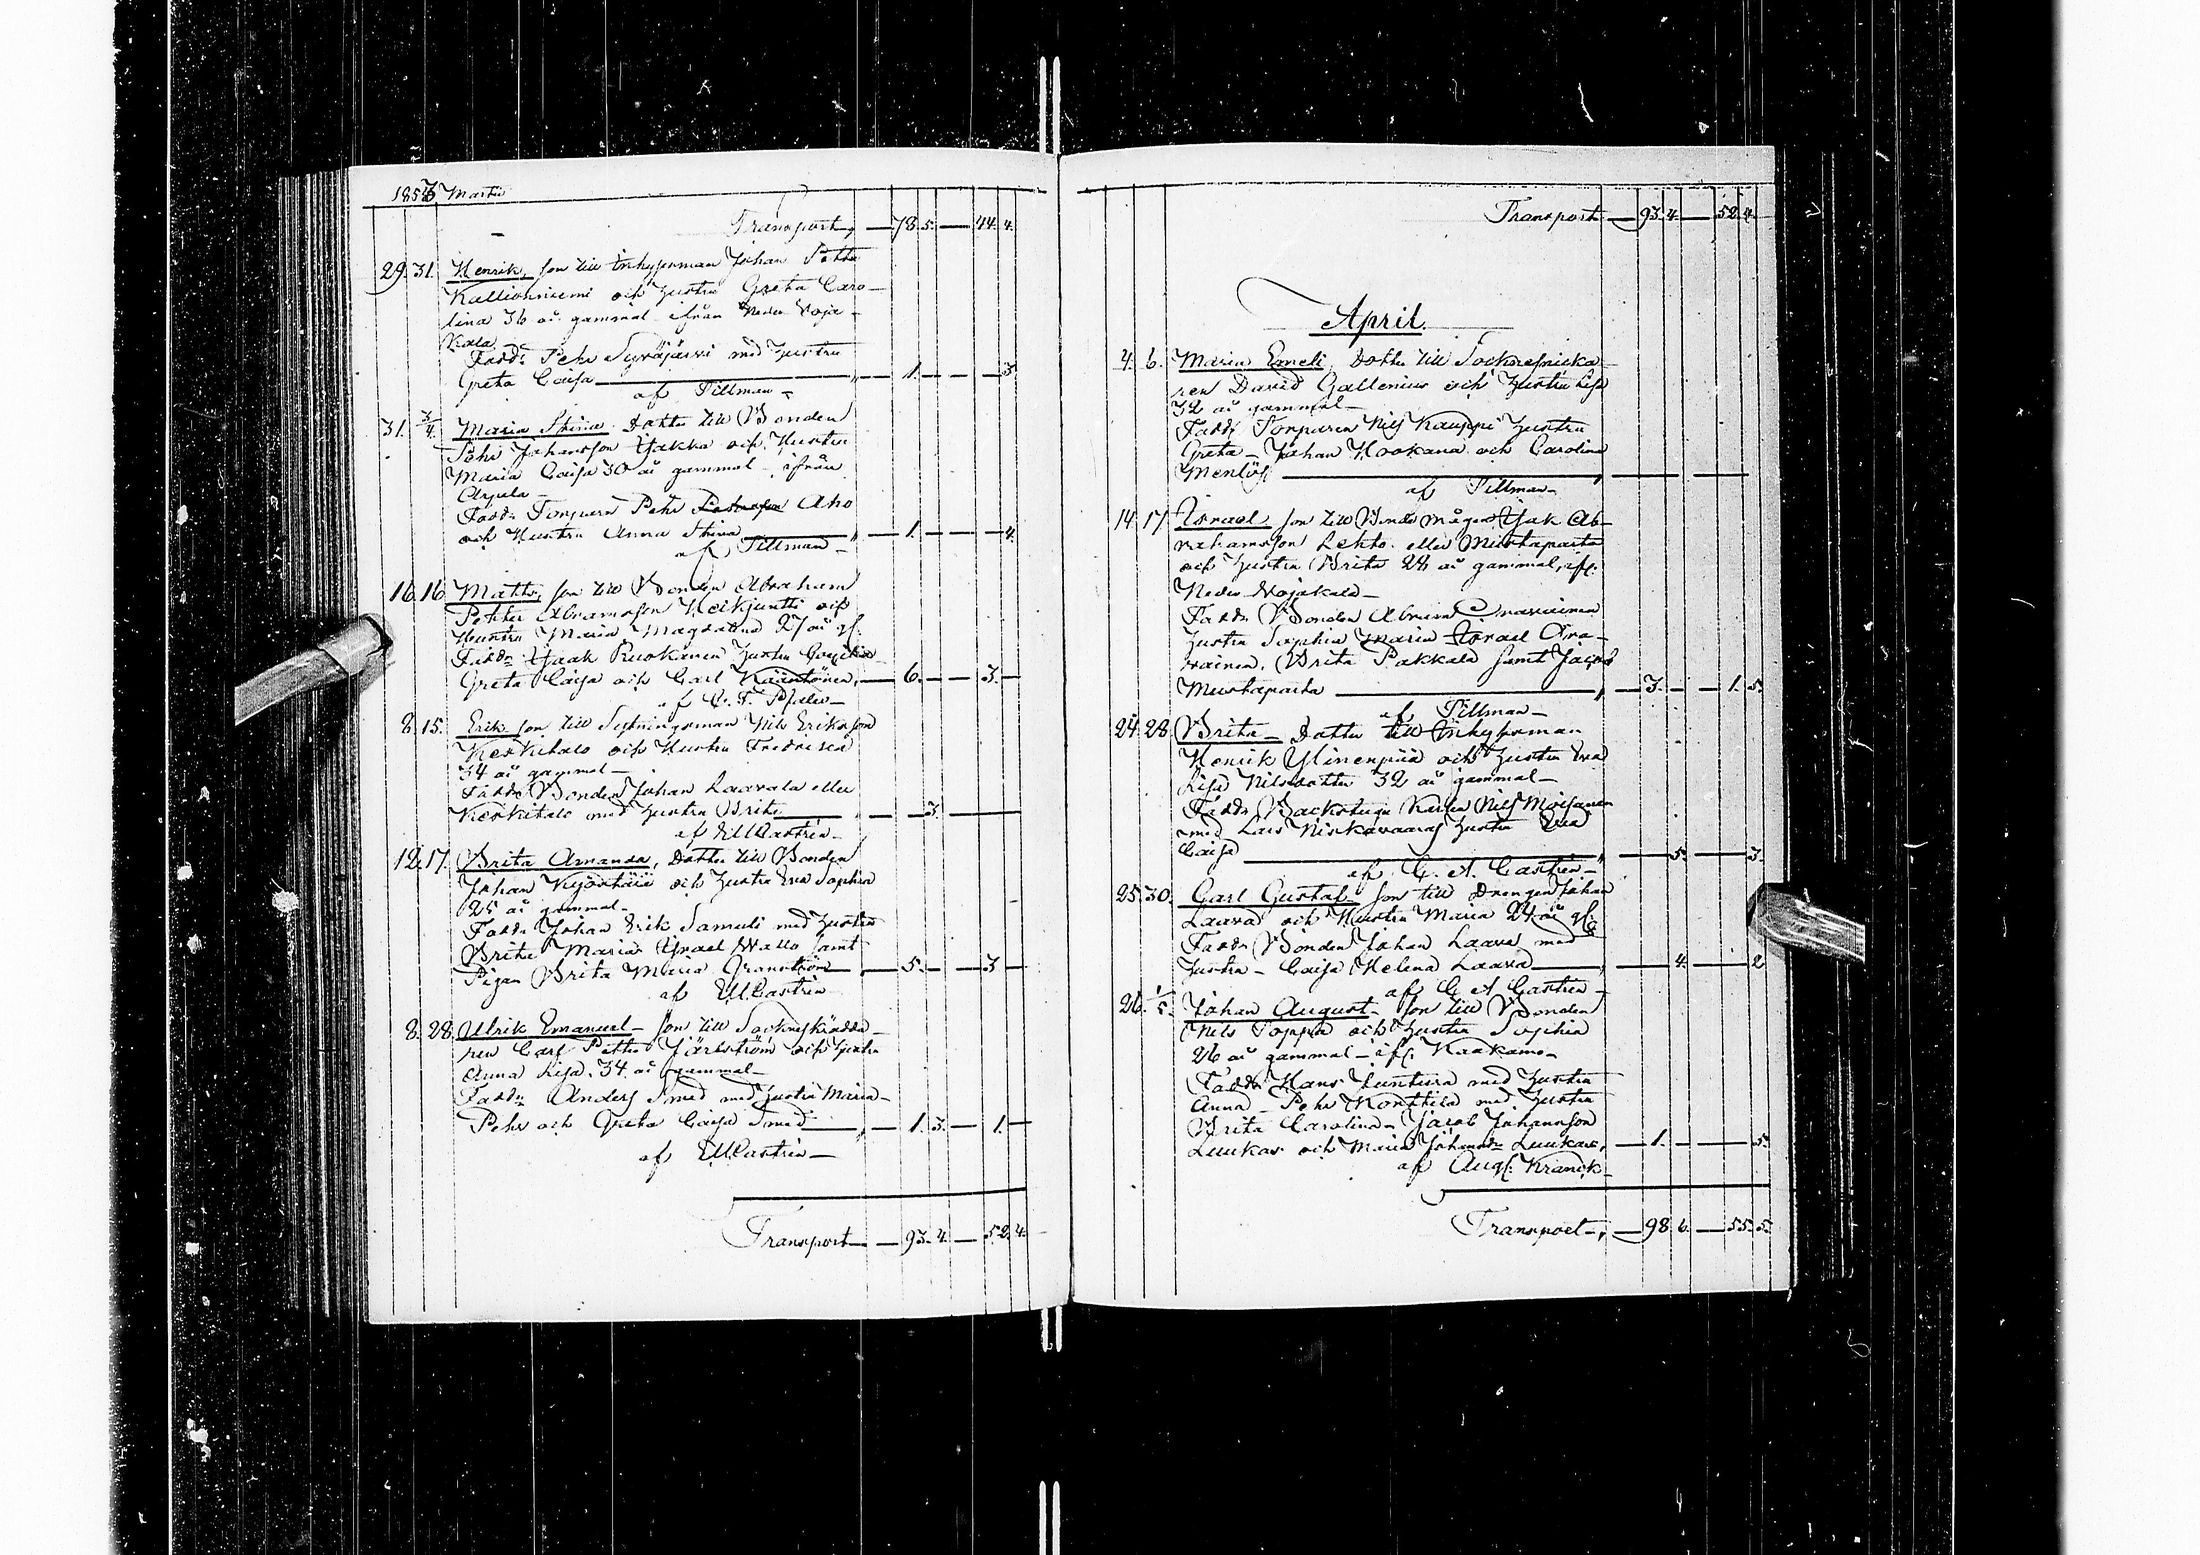 1853 Martii
Transport, — 78. 5. — 44. 4.
29. 31. Henrik, son till Inhysman Johan Petter
Kallionniemi och hustru Greta Caro-
lina 36 år gammal ifrån Neder Voja-
kala
Fadd: Pehr Syväjärvi med hustru
Greta Caisa — 1. — 3.
af Tillman –
31. 3/4. Maria Stina Dotter till Bonden
Pehr Johansson Yakko och Hustru
Maria Caisa 30 år gammal – ifrån
Arpela –
Fadd: Torparen Pehr Aho
och Hustru Anna Stina — 1. — 4.
af Tillman –
16. 16. Matts, son till Bonden Abraham
Petter Abramsson Heikjuntti och
Hustru Maria Magdalena 27 år gl.
Fadd: Isaak Ruokanen hustru
Greta Caisa och Carl — 6. — 3. —
af C. F.
8. 15. Erik son till Sytningsman Nils Eriksson
Keskitalo och Hustru Fredrica
34 år gammal –
Fadd: Bonden Johan Laavala eller
Keskitalo med hustru Brita — 3. —
af EMCastrén –
12. 17. Brita Amanda, Dotter till Bonden
Johan och hustru Eva Sophia
25 år gammal –
Fadd: Johan Erik Samuli med hustru
Brita Maria Israel Wallo samt
Pigan Brita Maria Granström — 5. — 3 —
af EMCastrén
8. 28. Ulrik Emanuel – son till Sockneskrädda-
ren Carl Petter Järlström och hustru
Anna Lisa. 34. år gammal –
Fadd: Anders Smed med hustru Maria –
Pehr och Greta Caisa Smed — 1. 3. — 1. —
af EMCastrén –
Transport — 93. 4. — 52. 4.
Transport — 93. 4. — 52. 4.
April.
4. 6. Maria Emeli, Dotter till Socknesnicka-
ren David Gallenius och hustru Lisa
32 år gammal –
Fadd: Torparen Nils Kauppi hustru
Greta – Johan Hookana och Carolina
Menlös
af Tillman –
14. 17. Israel son till Bonde mågen Isak Ab-
rahamsson Lehto. eller Mustaparta
och hustru Brita 28 år gammal, ifr:
Neder Vojakala –
Fadd: Bonden Abram
hustru Sophia Maria Israel Ara-
vainen. Brita Pakkala samt Jacob
Mustaparta — 3. — 1. 5.
af Tillman –
24. 28. Brita – Dotter till Inhysman
Henrik Ylinenpää och hustru Eva
Lisa Nilsdotter 32 år gammal –
Fadd: Backstugu Karlen Nils Moisanen
med Lars Niskavaaras hustru Eva
Caisa — 5. — 3.
af C. A. Castrén –
25. 30. Carl Gustaf – son till Drengen Johan
Laava och Hustru Maria 24 år gl:
Fadd: Bonden Johan Laava med
hustru – Caisa Helena Laava — 4. — 2
af C A Castrén –
26. 1/5. Johan August – son till Bonden
Nils Poppa och hustru Sophia
26 år gammal – ifr: Kaakamo –
Fadd: Hans Juntura med hustru
Anna – Pehr Konttila med hustru
Brita Carolina – Jacob Johansson
Luukas och Maria Johansdr Luukas, — 1. — 5.
af Aug: Kranck –
Transport –, — 98. 6. — 55. 5.